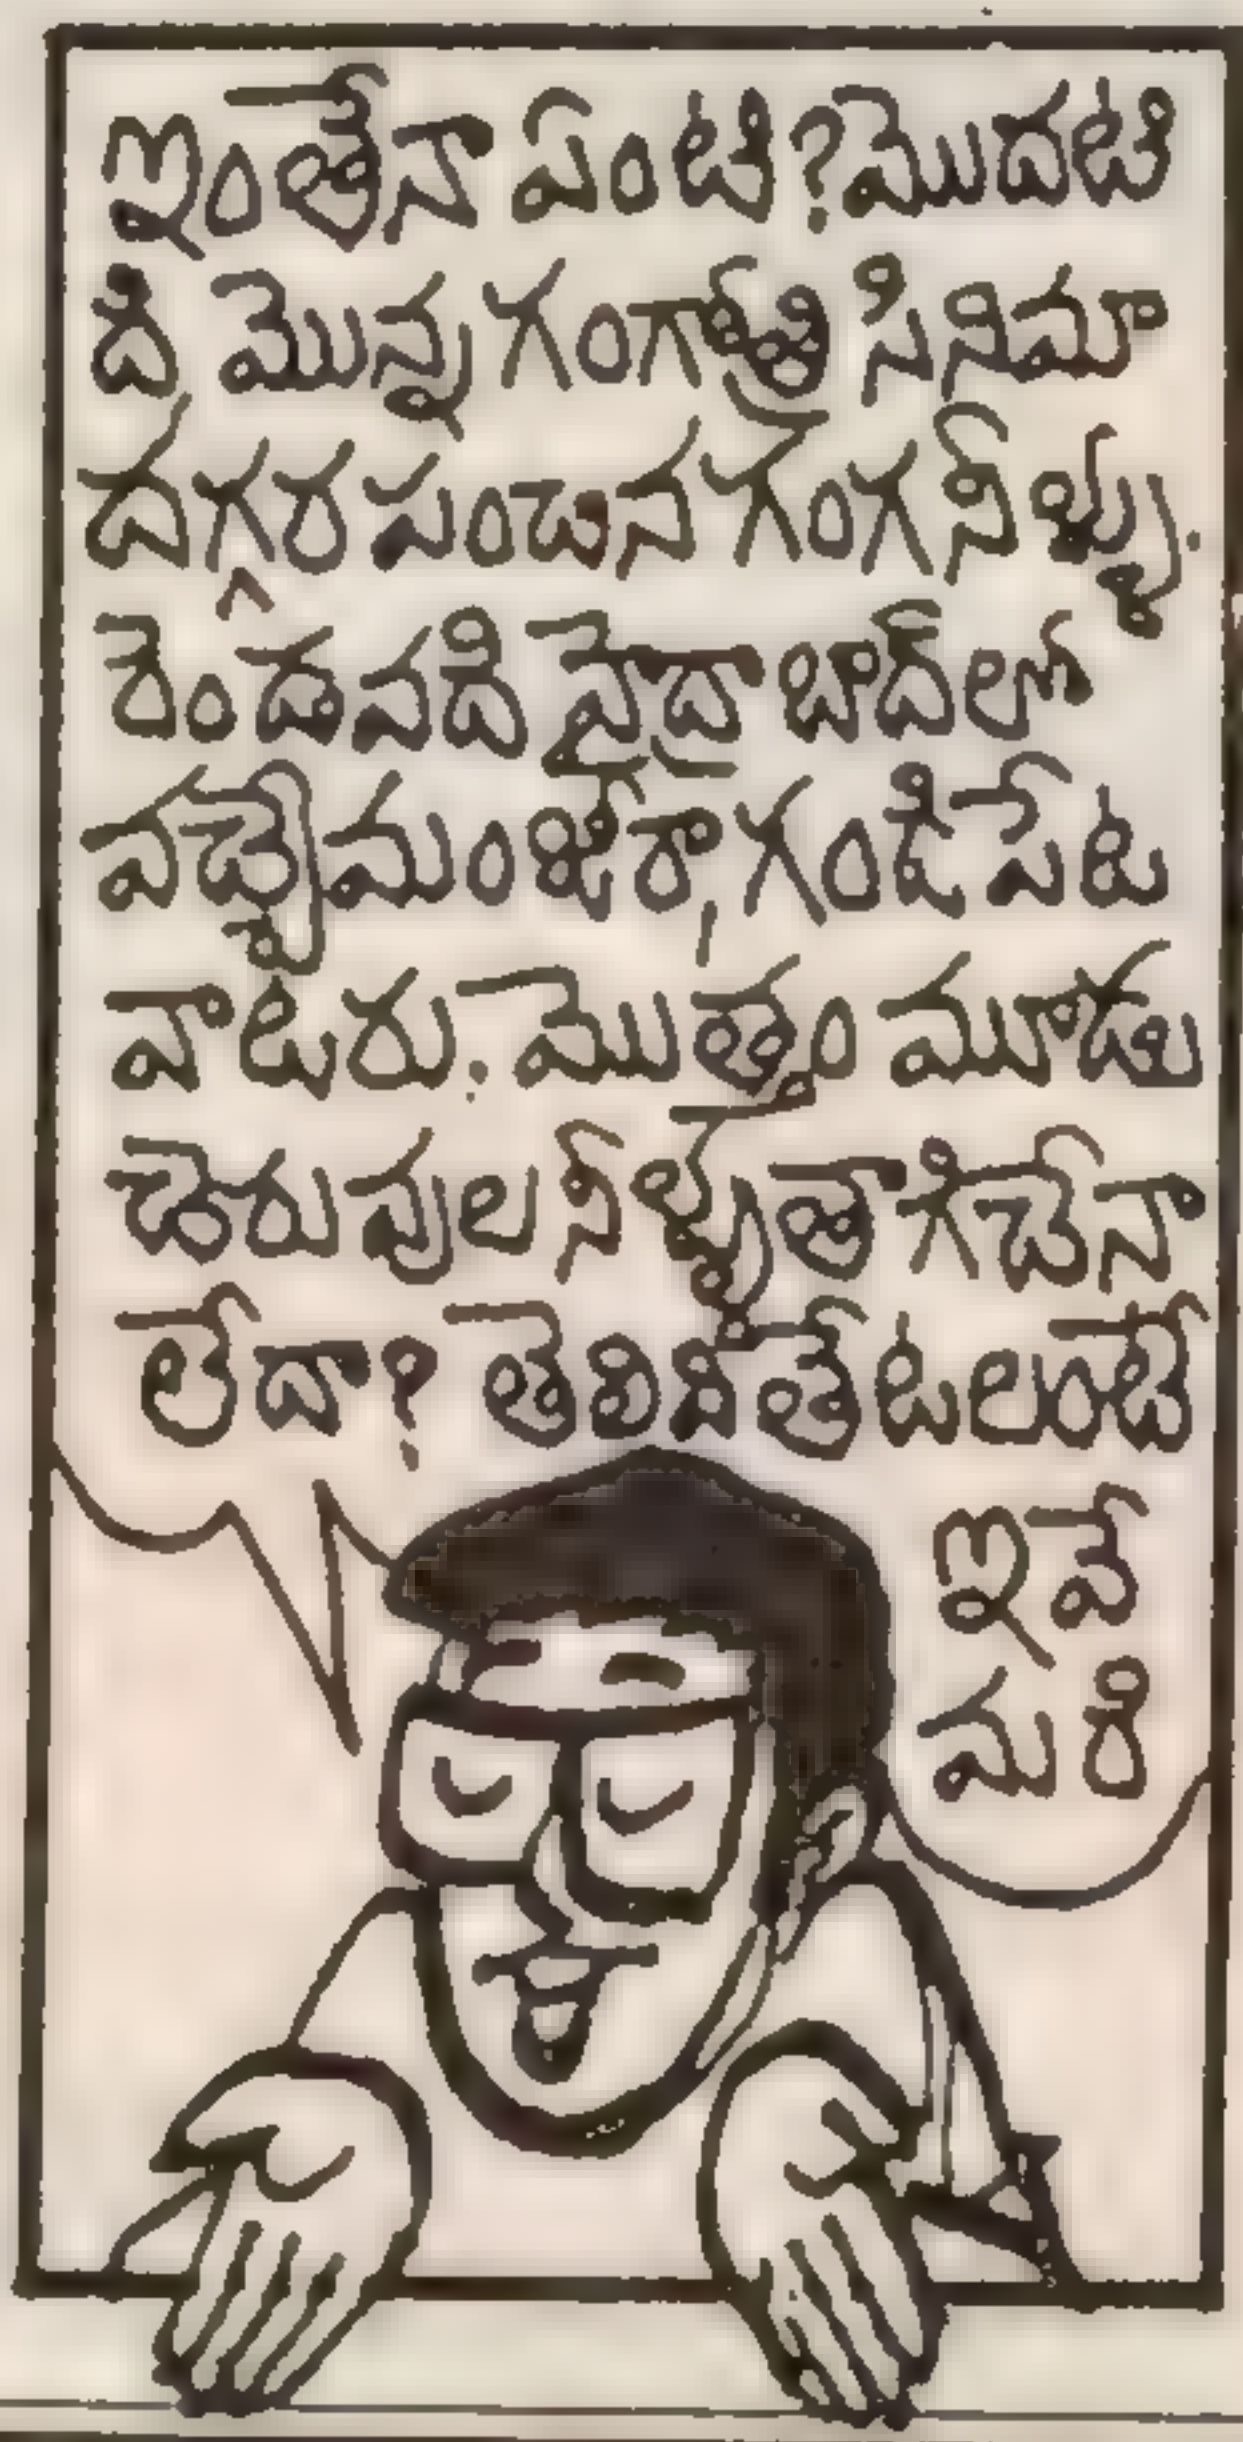 ఇంతేనా ఏంటి? మొదటి
ది మొన్న గంగోత్రి సినిమా
దగ్గర పంచిన గంగ నీళ్ళు.
రెండవది హైద్రాబాద్‌లో
వచ్చే మంజీరా, గండిపేట
వాటరు. మొత్తం మూడు
చెరువుల నీళ్ళు తాగేడేనా
లేదా? తెలివితేటలంటే
ఇవే
మరి